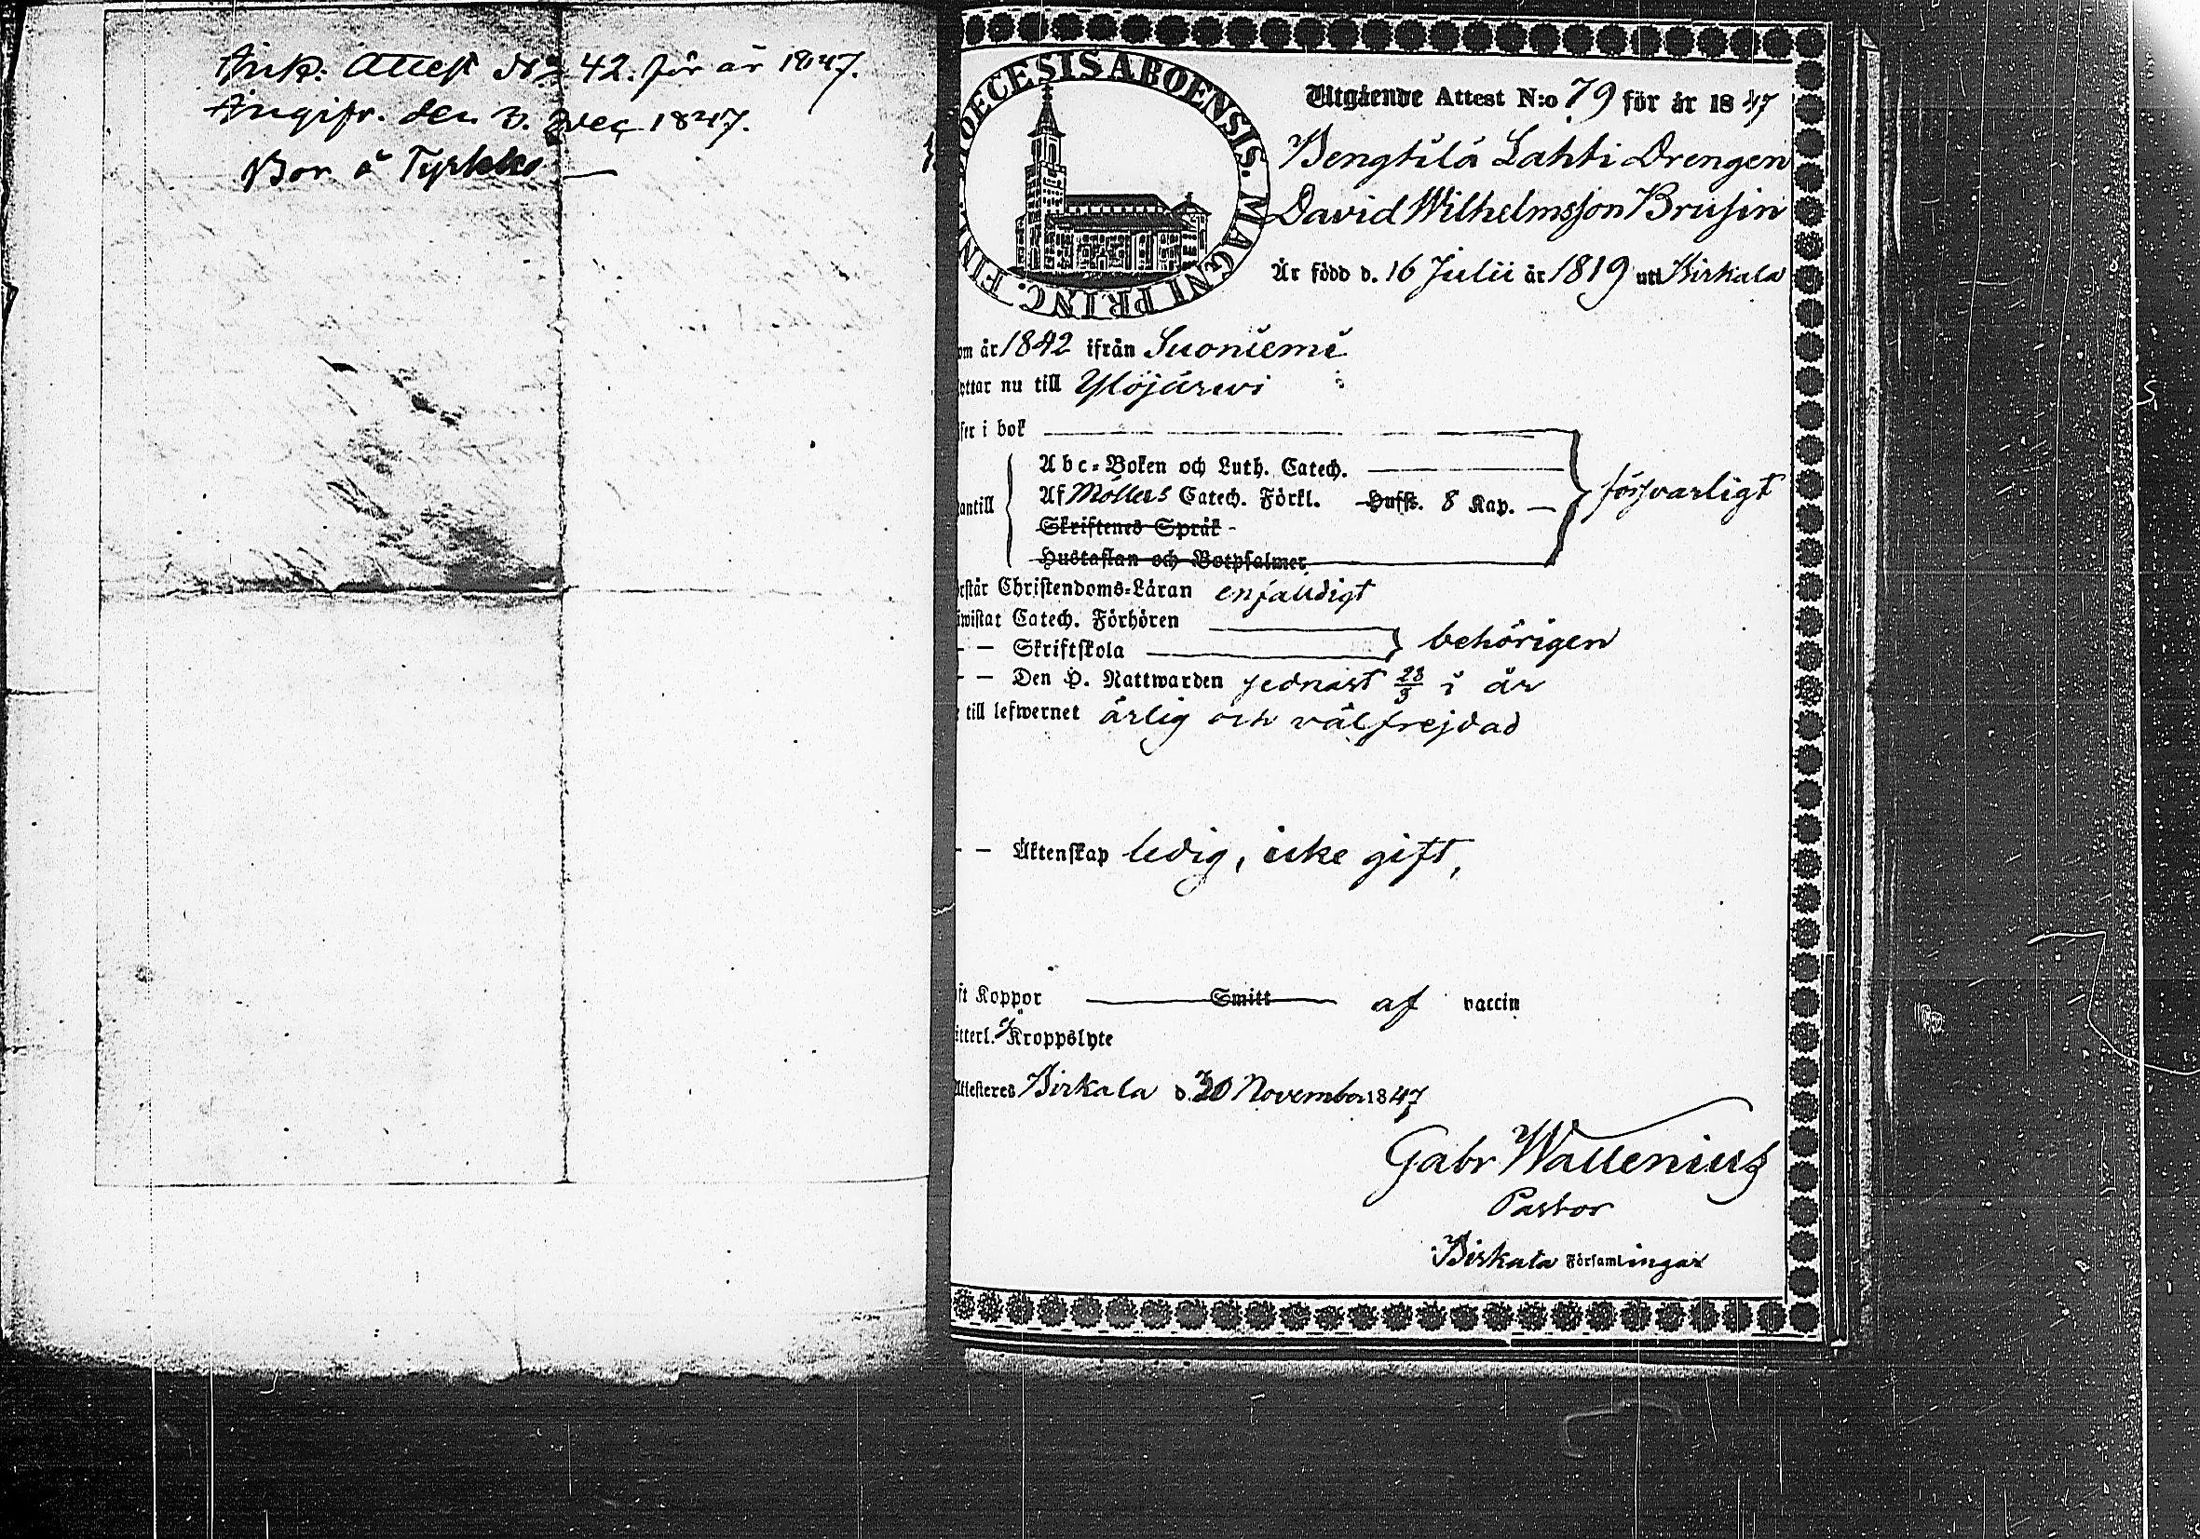 Ank. Attest No 42. för år 1847.
Angifv. den 3. Dec 1847.
Bor å Tyrkkö
DIOECESIS ABOENSIS. MAGNI PRINC. FINL.
Utgående Attest N:o 79 för år 1847
Bengtilä Lahti Drengen
David Wilhelmsson Brusin
Är född d. 16 Julii år 1819 uti Birkala
om år 1842 ifrån Suoniemi
ottar nu till Ylöjärwi
ser i bok
Abc-Boken och Luth. Catech.
antill Af Möllers Catech. Förkl. Hufst. 8 Kap. försvarligt
Skriftenes Språk
Hustaflan och Botpsalmer
rstår Christendoms-Läran enfaldigt
iwistat Catech. Förhören
– – Skriftskola behörigen
– – Den H. Nattwarden sednast 28/3 i år
till lefwernet ärlig och välfrejdad
– – Äktenskap ledig, icke gift,
ft Koppor Smitt af vaccin
itterl. Kroppslyte
Attesteres Birkala d. 30 November 1847
Gabr Wallenius
Pastor
Birkala Församlingar